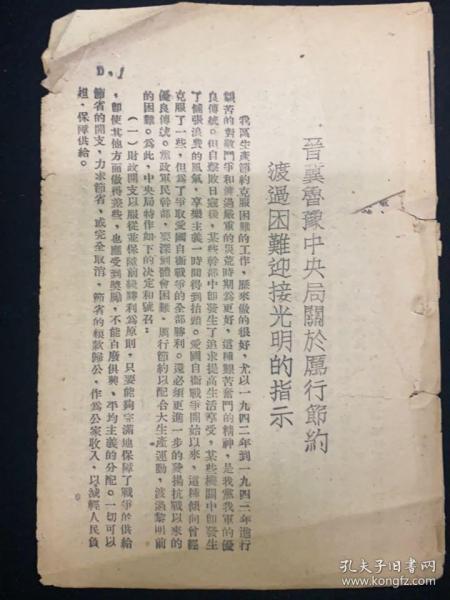 晉冀魯豫中央局關於厲行節約
渡過困難迎接光明的指示
我區生產節約克服困難的工作，歷來做的很好，尤以一九四二年到一九四三年進行
艱苦的對敵鬥爭和渡過嚴重的災荒時期爲更好，這種艱苦奮鬥的精神，是我黨我軍的優
良傳統。但自擊敗日寇後，某些幹部中即發生了追求提高生活享受，某些機關中即發生
了鋪張浪費的風氣，享樂主義一時間得到抬頭。愛國自衛戰爭開始以來，這種傾向曾經
克服了一些，但爲了爭取愛國自衛戰爭的全部勝利。還必須更進一步的發揚抗戰以來的
優良傳統。黨政軍民幹部，要深刻體會困難，厲行節約以配合大生產運動，渡過黎明前
的困難。爲此，中央局特作如下的決定和號召：
（一）財政開支以服從並保障前綫勝利爲原則，只要能夠完滿地保障了戰爭的供給
，即使其他方面做得差些，也應受到獎勵，不能百廢俱興、平均主義的分配。一切可以
節省的開支，力求節省，或完全取消，節省的糧款歸公，作爲公家收入，以減輕人民負
担，保障供給。
D.1
孔夫子旧书网
www.kongfz.com